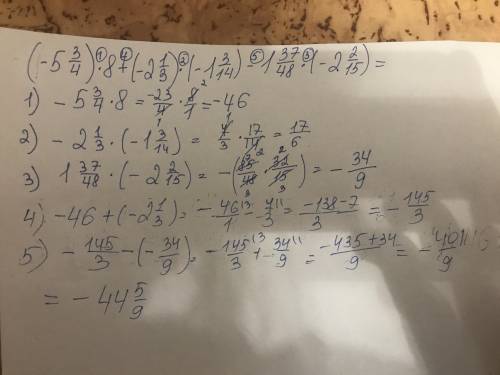 (-5 3/4)·8+(-2 1/3)·(-1 3/14)-1 37/48·(-2 2/15)=
1) -5 3/4·8=-23/4·8/1=-46
2) -2 1/3·(-1 3/14)=7/3·17/14=17/6
3) 1 37/48·(-2 2/15)=-(85/48·32/15)=-34/9
4) -46+(-2 1/3)=-46/1-7/3=-138-7/3=-145/3
5) -145/3-(-34/9)=-145/3+34/9=-435+34/9=-401/9
=-44 5/9